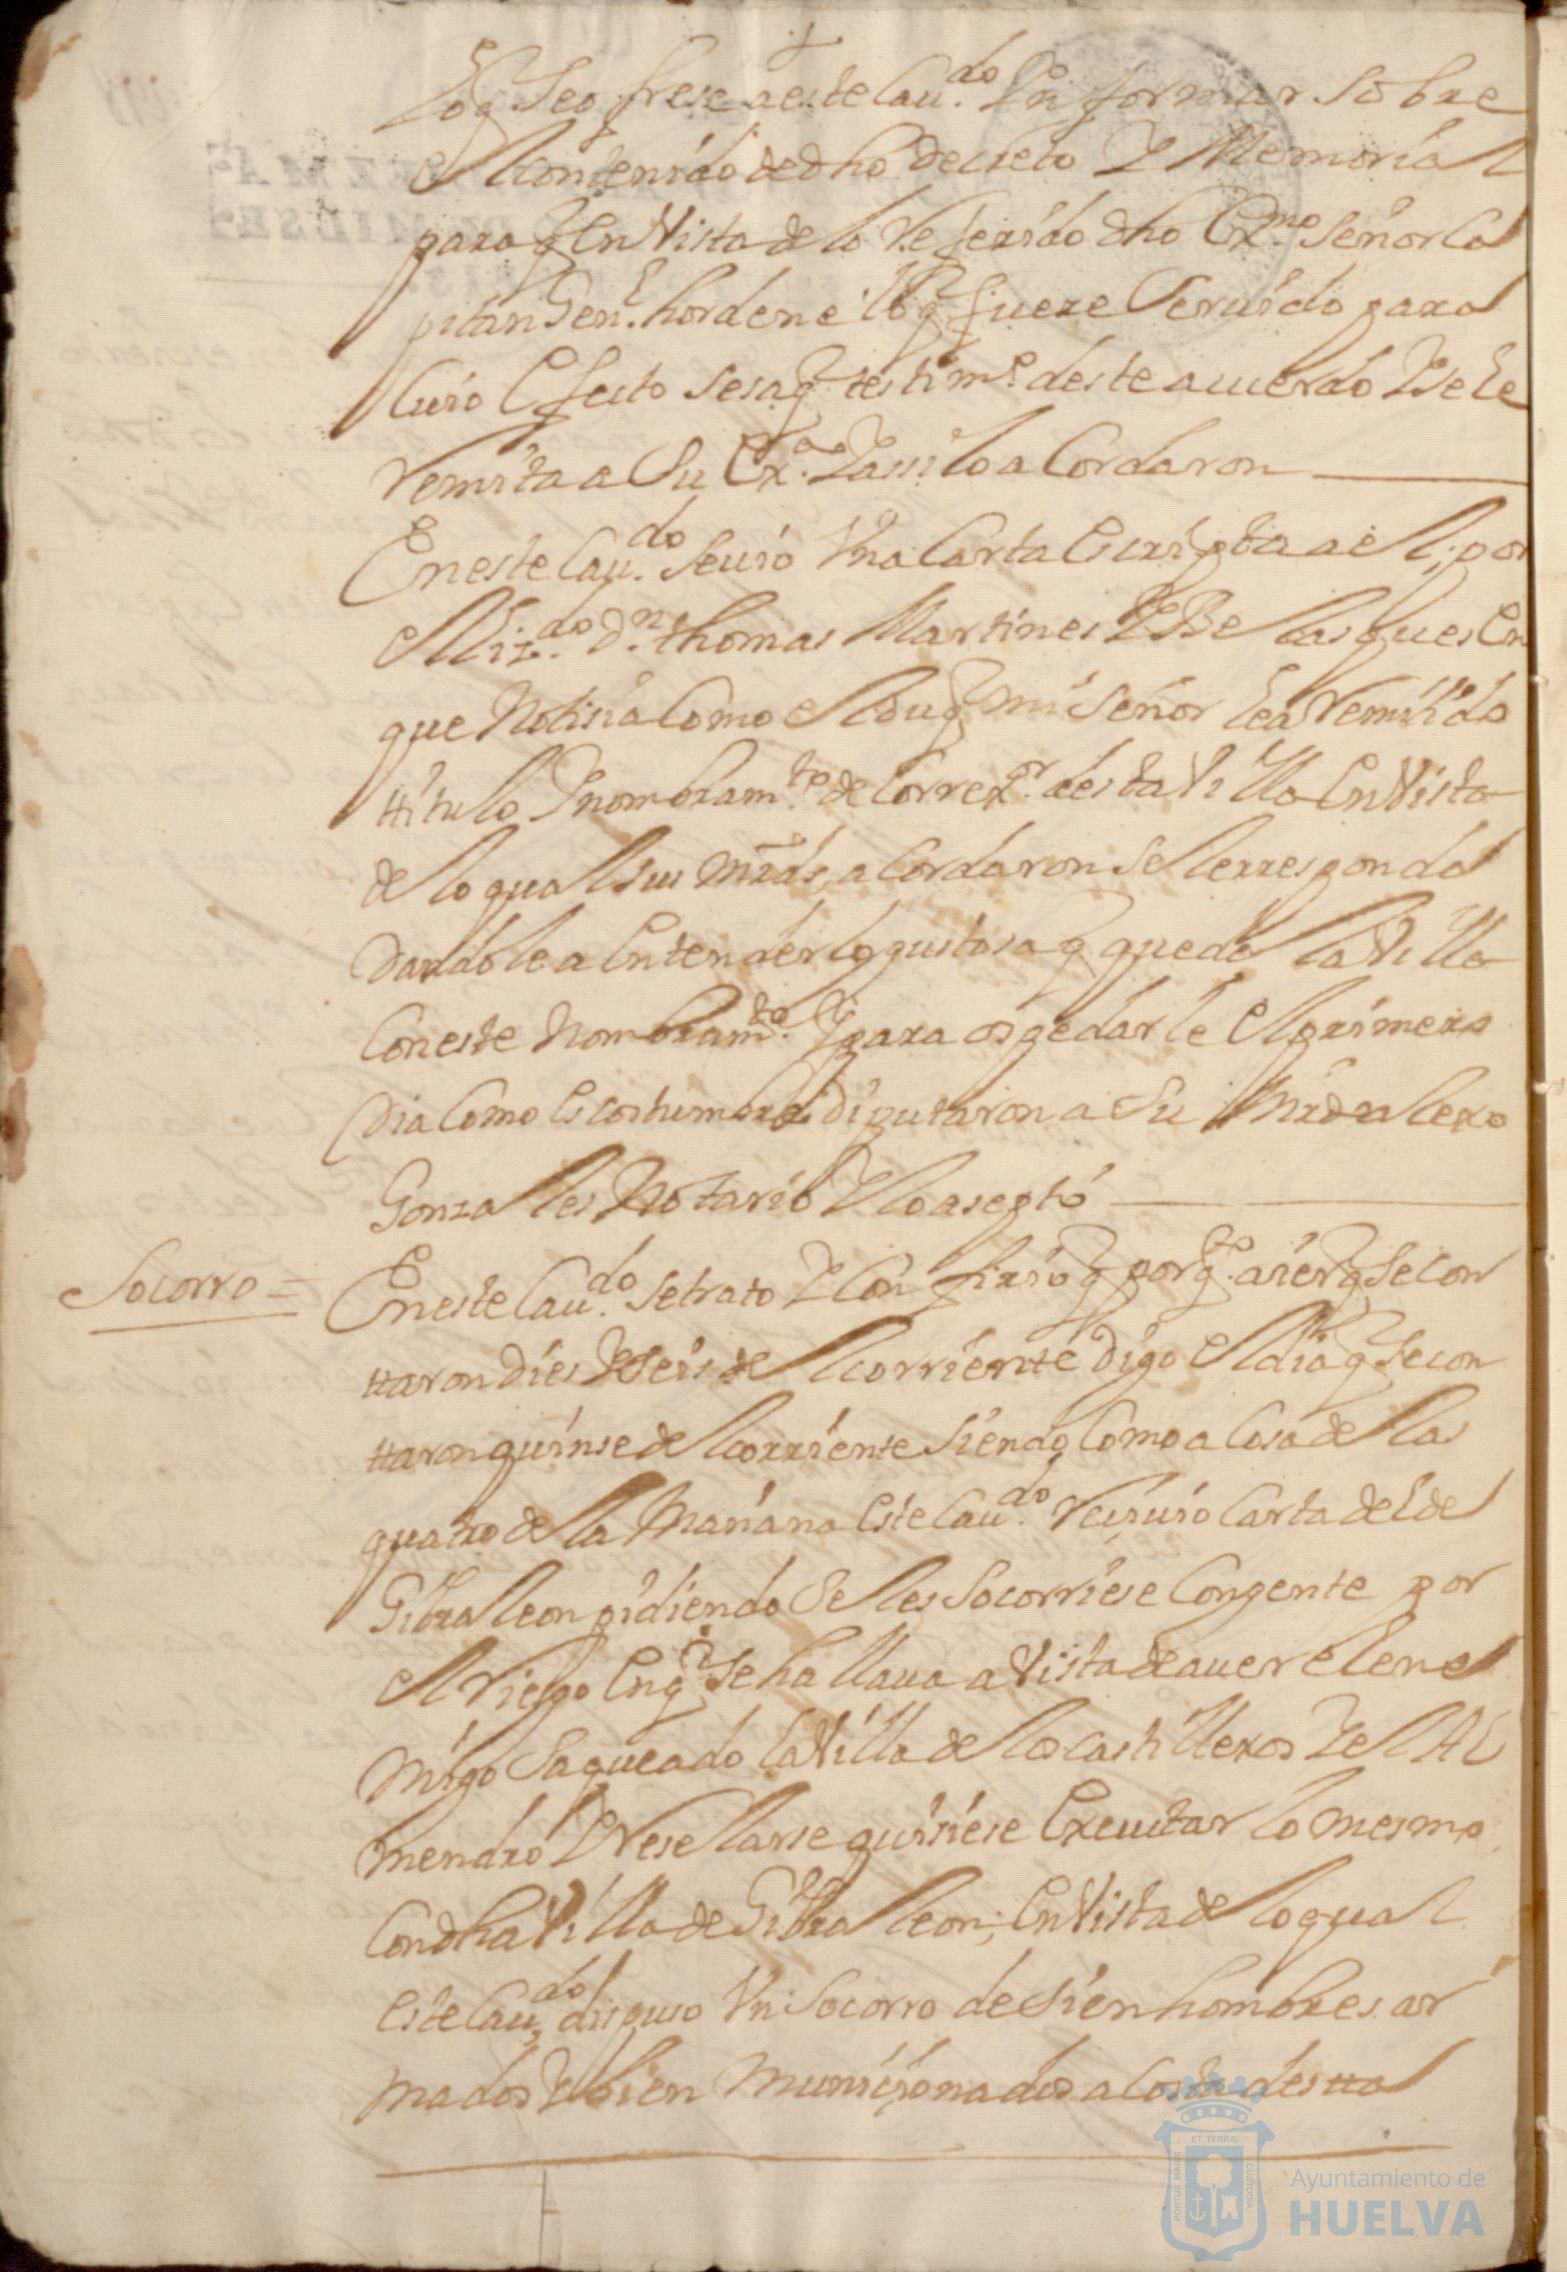 loq Se ofrese a este Cau.do Ynformar Sobre
el Contenido de dho decreto Y Memorial
para q En Vista de lo Referido dho Ex.mo Señor Ca
pitan Gen.l hordene lo q fuere Seruido para
Cuio Efecto se saq testim.o deste acuerdo Y se le
Remita a Su Ex.a Y assi lo a Cordaron
En este Cau.do Se uio Vna Carta Escripta a el por
el Liz.do D.n thomas Martines Y Belasques En
que Notisia Como el duq mi Señor le a Remitido
titulo Y nombram.to de Correx.or desta Villa En Vista
de lo qual sus mrds, a Cordaron Se le rresponda
dandole a Entender lo gustosa q queda la Villa
Con este Nombram.to Y para ospedarle el primero
dia Como es costumbre diputaron a Su Mrd alexo
Gonzales Notario Y lo aseptó
Socorro =
En este Cau.do se trato Y Confirio q por q.to aier q Se con
taron dies Y seis de el corriente digo el dia q Se con
taron quinse de el corriente Siendo Como a Cosa de las
quatro de la Mañana este Cau.do Resiuio Carta de el de
Gibraleon pidiendo Se les Socorriese Con gente por
el Riesgo En q Se hallaua a Vista de auer el ene
migo Saqueado la Villa de los Castillexos Y el Al
mendro Y Reselarse quisiese Executar lo mesmo
Con dha Villa de Gibraleon; En Vista de lo qual
este Cau.do dispuso Vn Socorro de Sien hombres ar
mados Y bien Munisionados a Costa desta
PORTUS MARIS ET TERRAE CUSTODIA
Ayuntamiento de
HUELVA